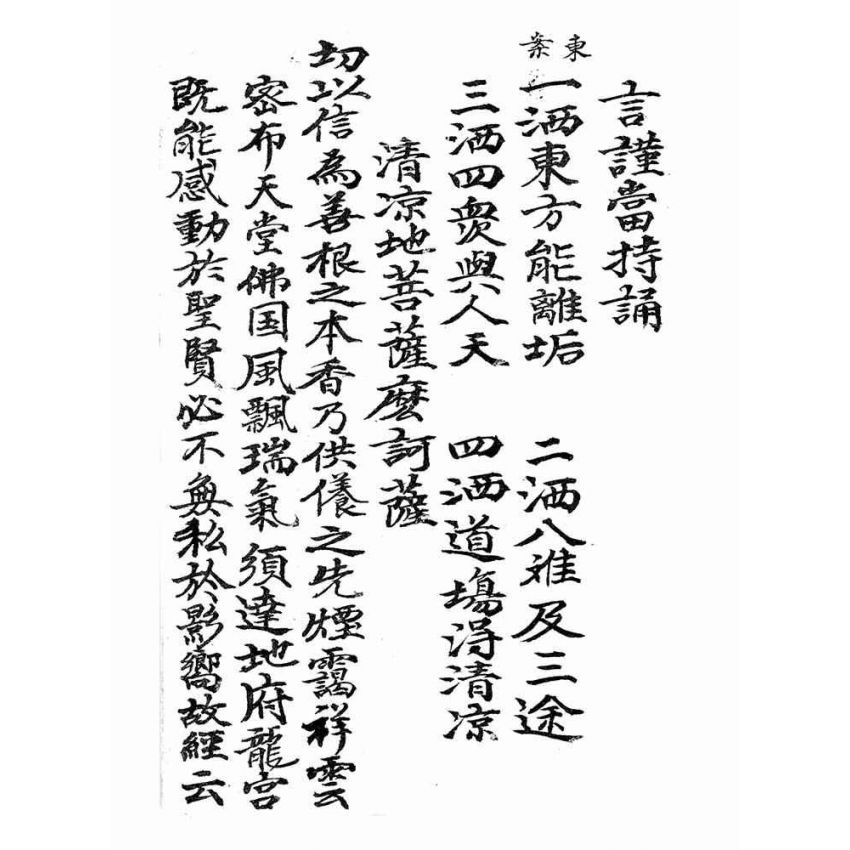 言謹當持誦
東案
一洒東方能離垢　二洒八难及三途
三洒四衆與人天　四洒道塲淂清凉
清凉地菩薩麽訶薩
切以信為善根之本香乃供儀之先煙靄祥雲
密布天堂佛国風飄瑞氣須達地府龍宮
既能感動於聖賢必不無私於影嚮故經云